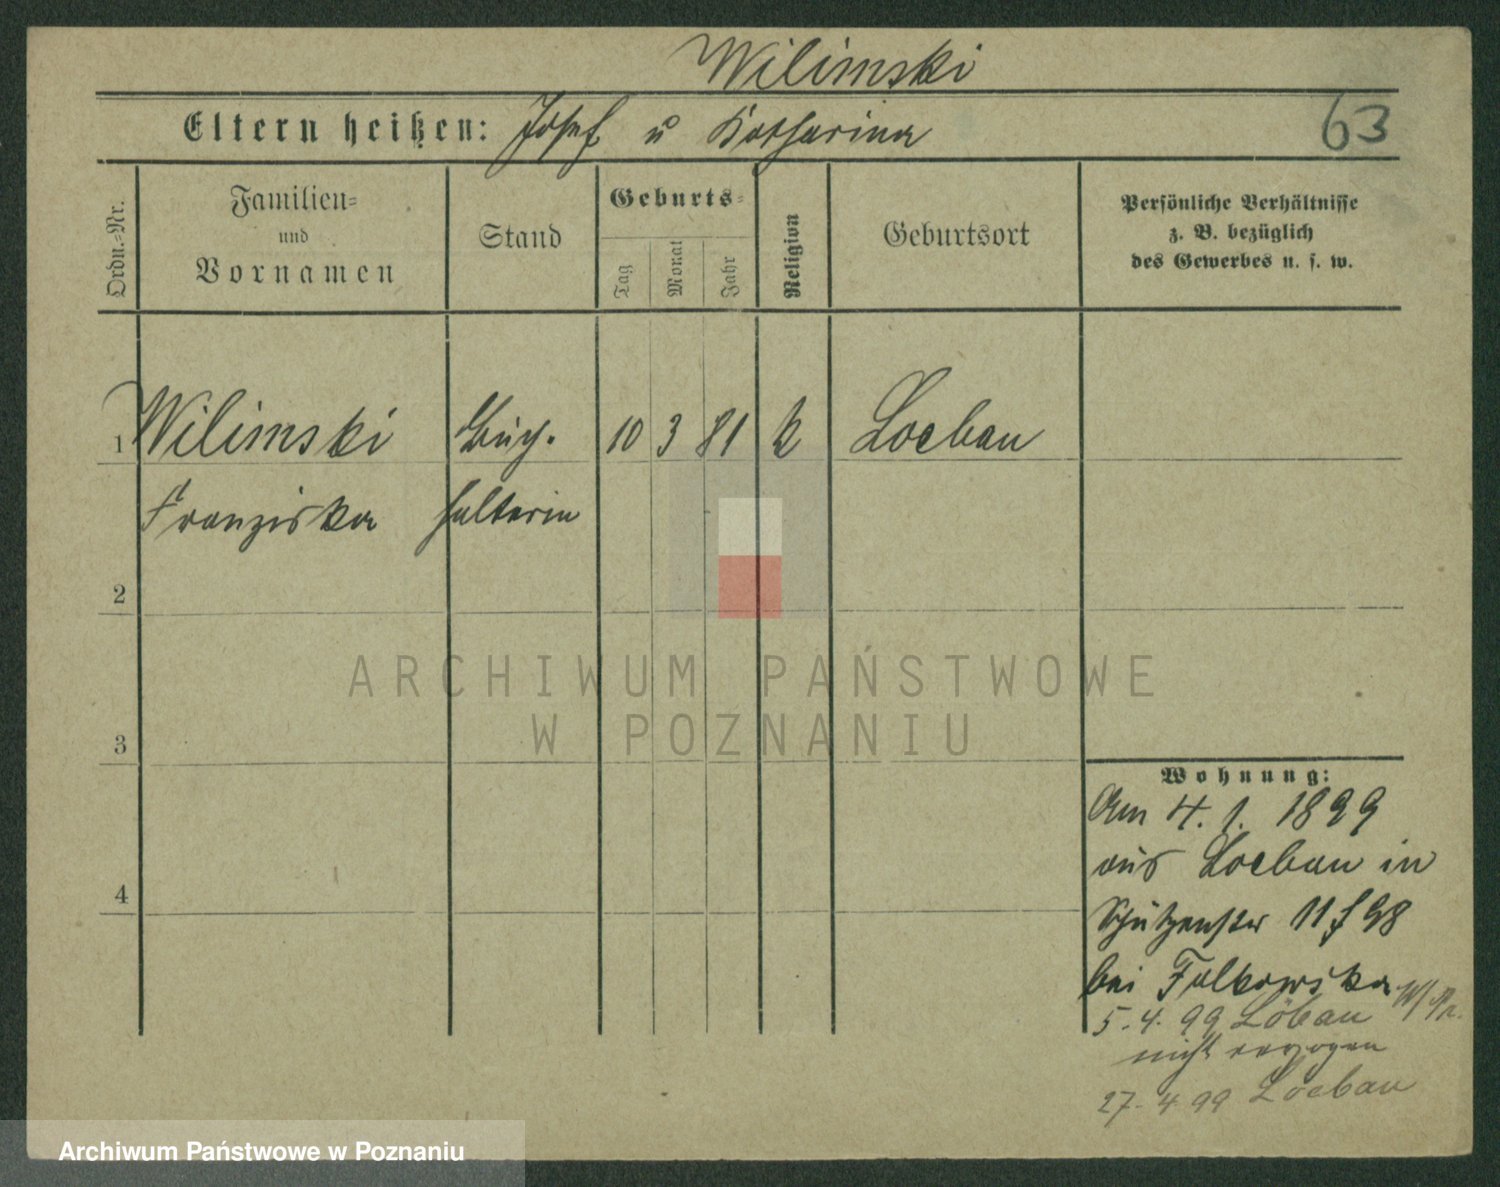 Wilimski
Eltern heißen: Josef u Katharina
63
Ordn.-Nr.
Familien-
und
Vornamen
Stand
Geburts-
Tag
Monat
Jahr
Religion
Geburtsort
Persönliche Verhältnisse
z. B. bezüglich
des Gewerbes u. s. w.
1 Wilimski Buch- 10 3 81 k Loebau
Franziska halterin
2
3
4
ARCHIWUM PAŃSTWOWE
W POZNANIU
Wohnung:
Am 4. 1. 1899
aus Loebau in
Schützenstr 11 f 98
bei Falkowska
5. 4. 99 Löbau W/Pr.
nicht verzogen
27. 4 99 Loebau
Archiwum Państwowe w Poznaniu